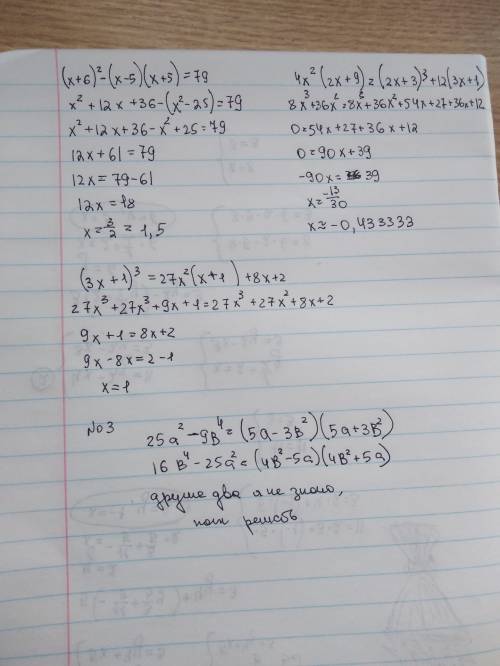 (x+6)²-(x-5)(x+5)=79
x²+12x+36-(x²-25)=79
x²+12x+36-x²+25=79
12x+61=79
12x=79-61
12x=18
x=3/2=1,5
4x²(2x+9)=(2x+3)³+12(3x+1)
8x³+36x²=8x³+36x²+54x+27+36x+12
0=54x+27+36x+12
0=90x+39
-90x=39
x=-13/30
x≈-0,433333
(3x+1)³=27x²(x+1)+8x+2
27x³+27x³+9x+1=27x³+27x²+8x+2
9x+1=8x+2
9x-8x=2-1
x=1
№3
25a²-9b⁴=(5a-3b²)(5a+3b²)
16b⁴-25a²=(4b²-5a)(4b²+5a)
другие два я не знаю,
как решать